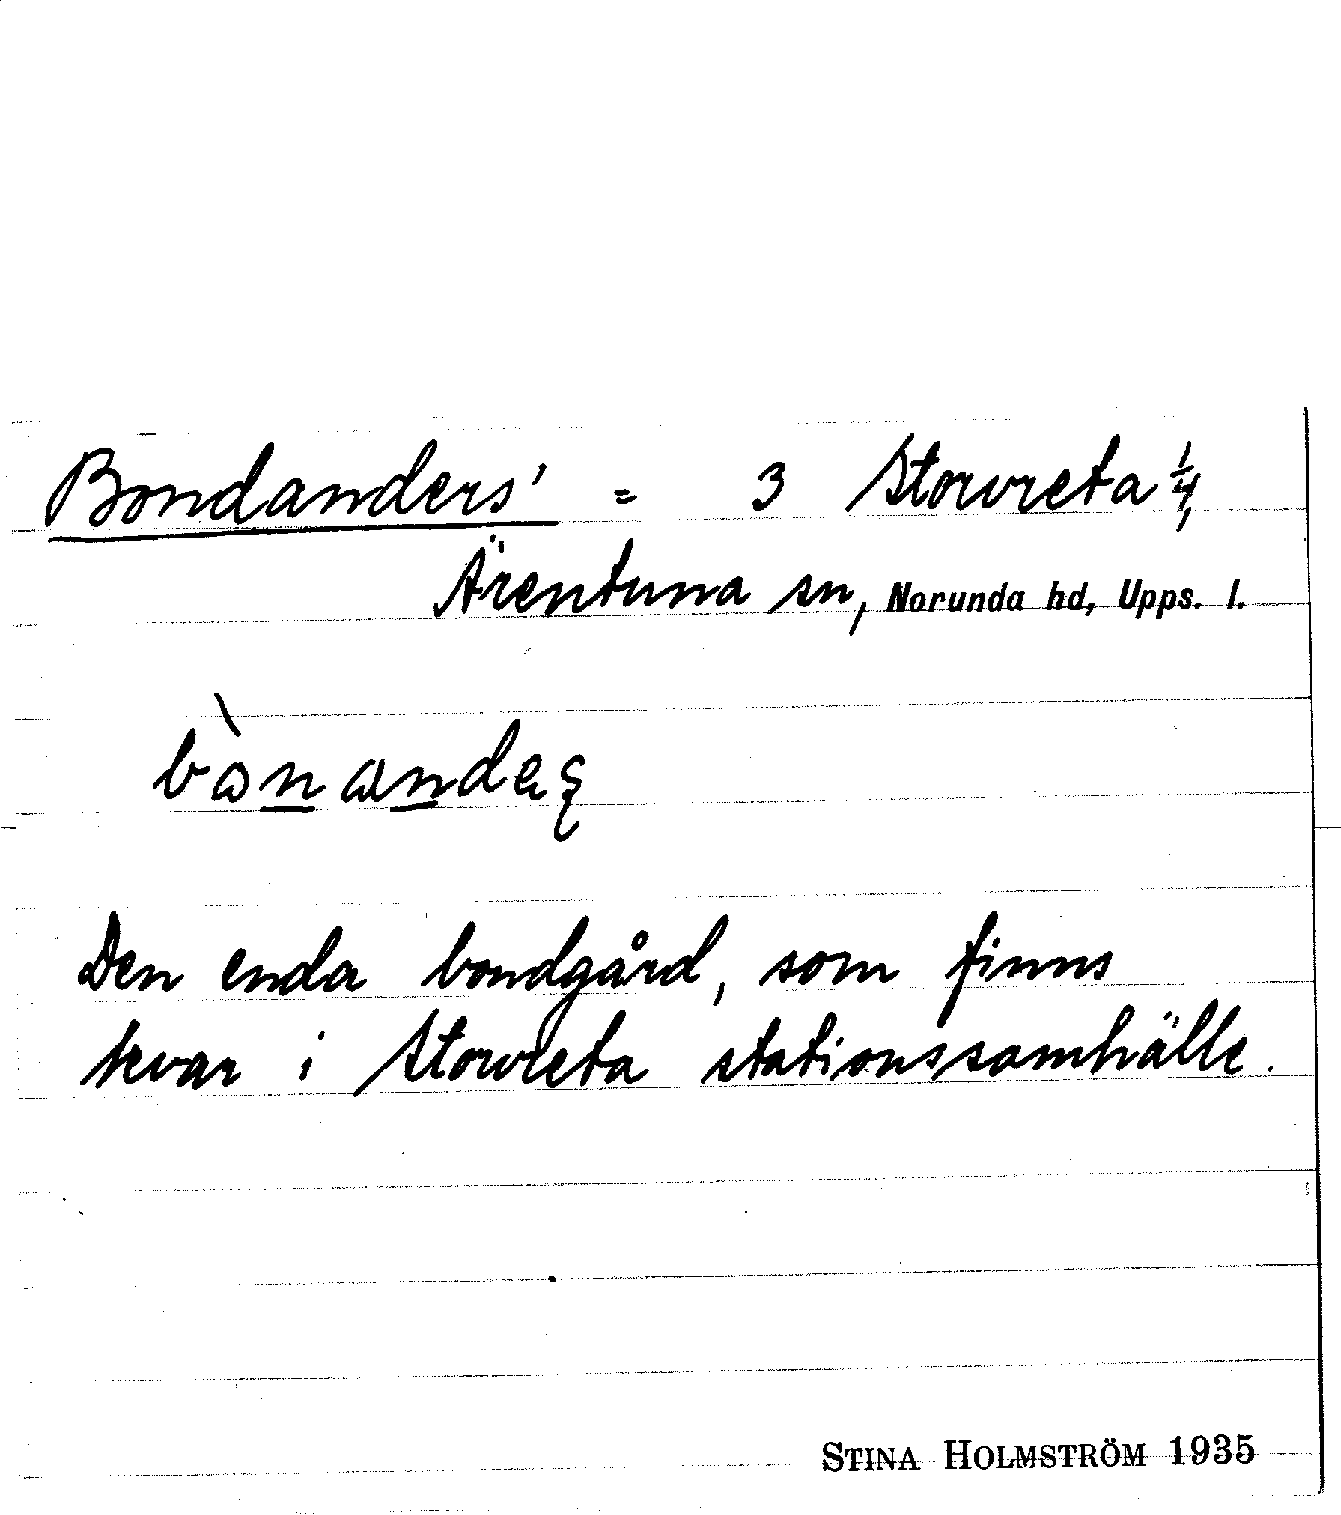 Bondanders' = 3 Storvreta ¼,
Ärentuna sn, Norunda hd, Upps. l.
bònandeʂ
Den enda bondgård, som finns
kvar i Storvreta stationssamhälle.
STINA HOLMSTRÖM 1935